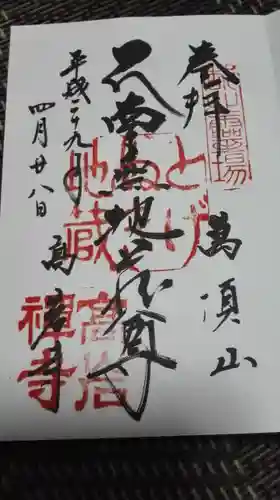 奉拝
萬頂山
南無地蔵尊
とげぬき地蔵
平成二十九年
四月廿八日
高岩寺
高岩禅寺